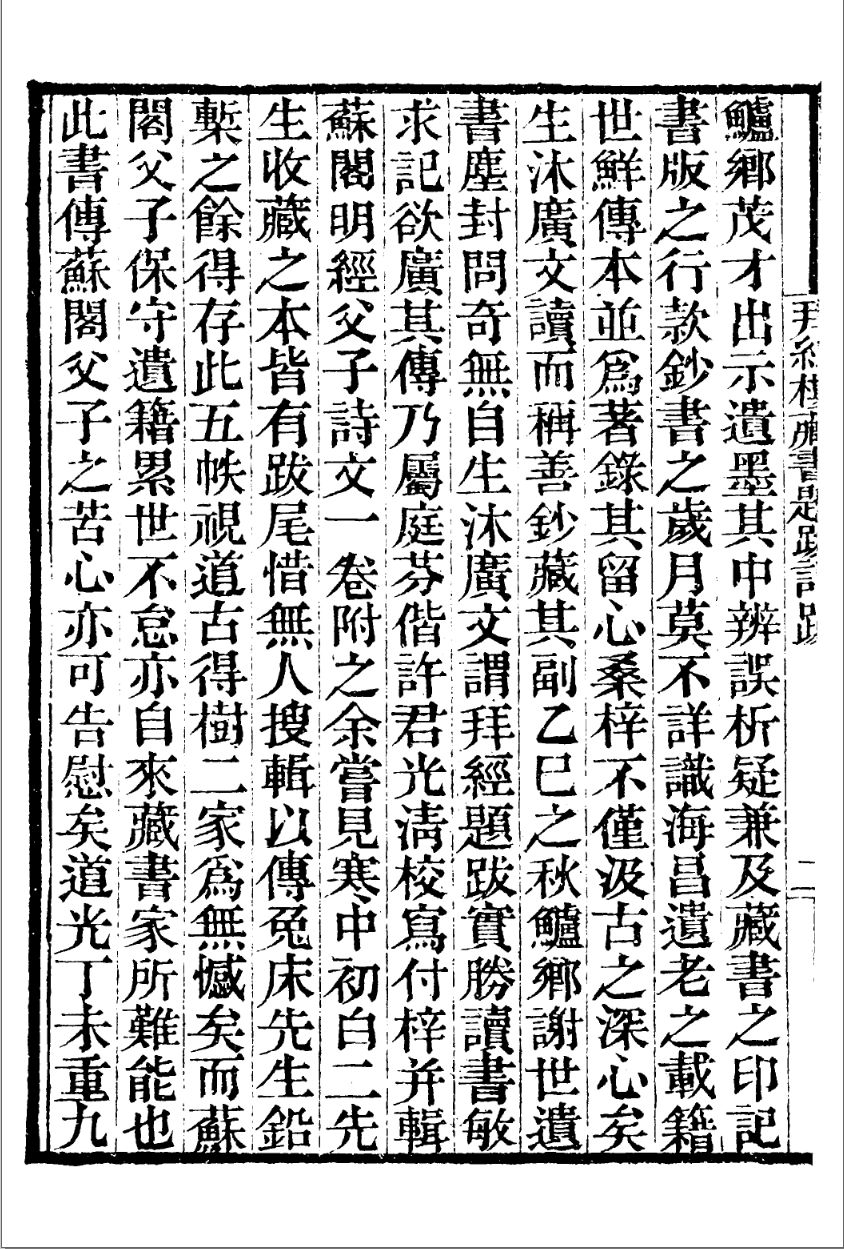 拜經樓藏書題跋記跋 二
鱸鄉茂才出示遺墨其中辨誤析疑兼及藏書之印記
書版之行款鈔書之歲月莫不詳識海昌遺老之載籍
世鮮傳本並爲著錄其留心桑梓不僅汲古之深心矣
生沐廣文讀而稱善鈔藏其副乙巳之秋鱸鄉謝世遺
書塵封問奇無自生沐廣文謂拜經題跋實勝讀書敏
求記欲廣其傳乃屬庭芬偕許君光淸校寫付梓并輯
蘇閣明經父子詩文一卷附之余嘗見寒中初白二先
生收藏之本皆有跋尾惜無人搜輯以傳兎床先生鉛
槧之餘得存此五帙視道古得樹二家爲無憾矣而蘇
閣父子保守遺籍累世不怠亦自來藏書家所難能也
此書傳蘇閣父子之苦心亦可告慰矣道光丁未重九